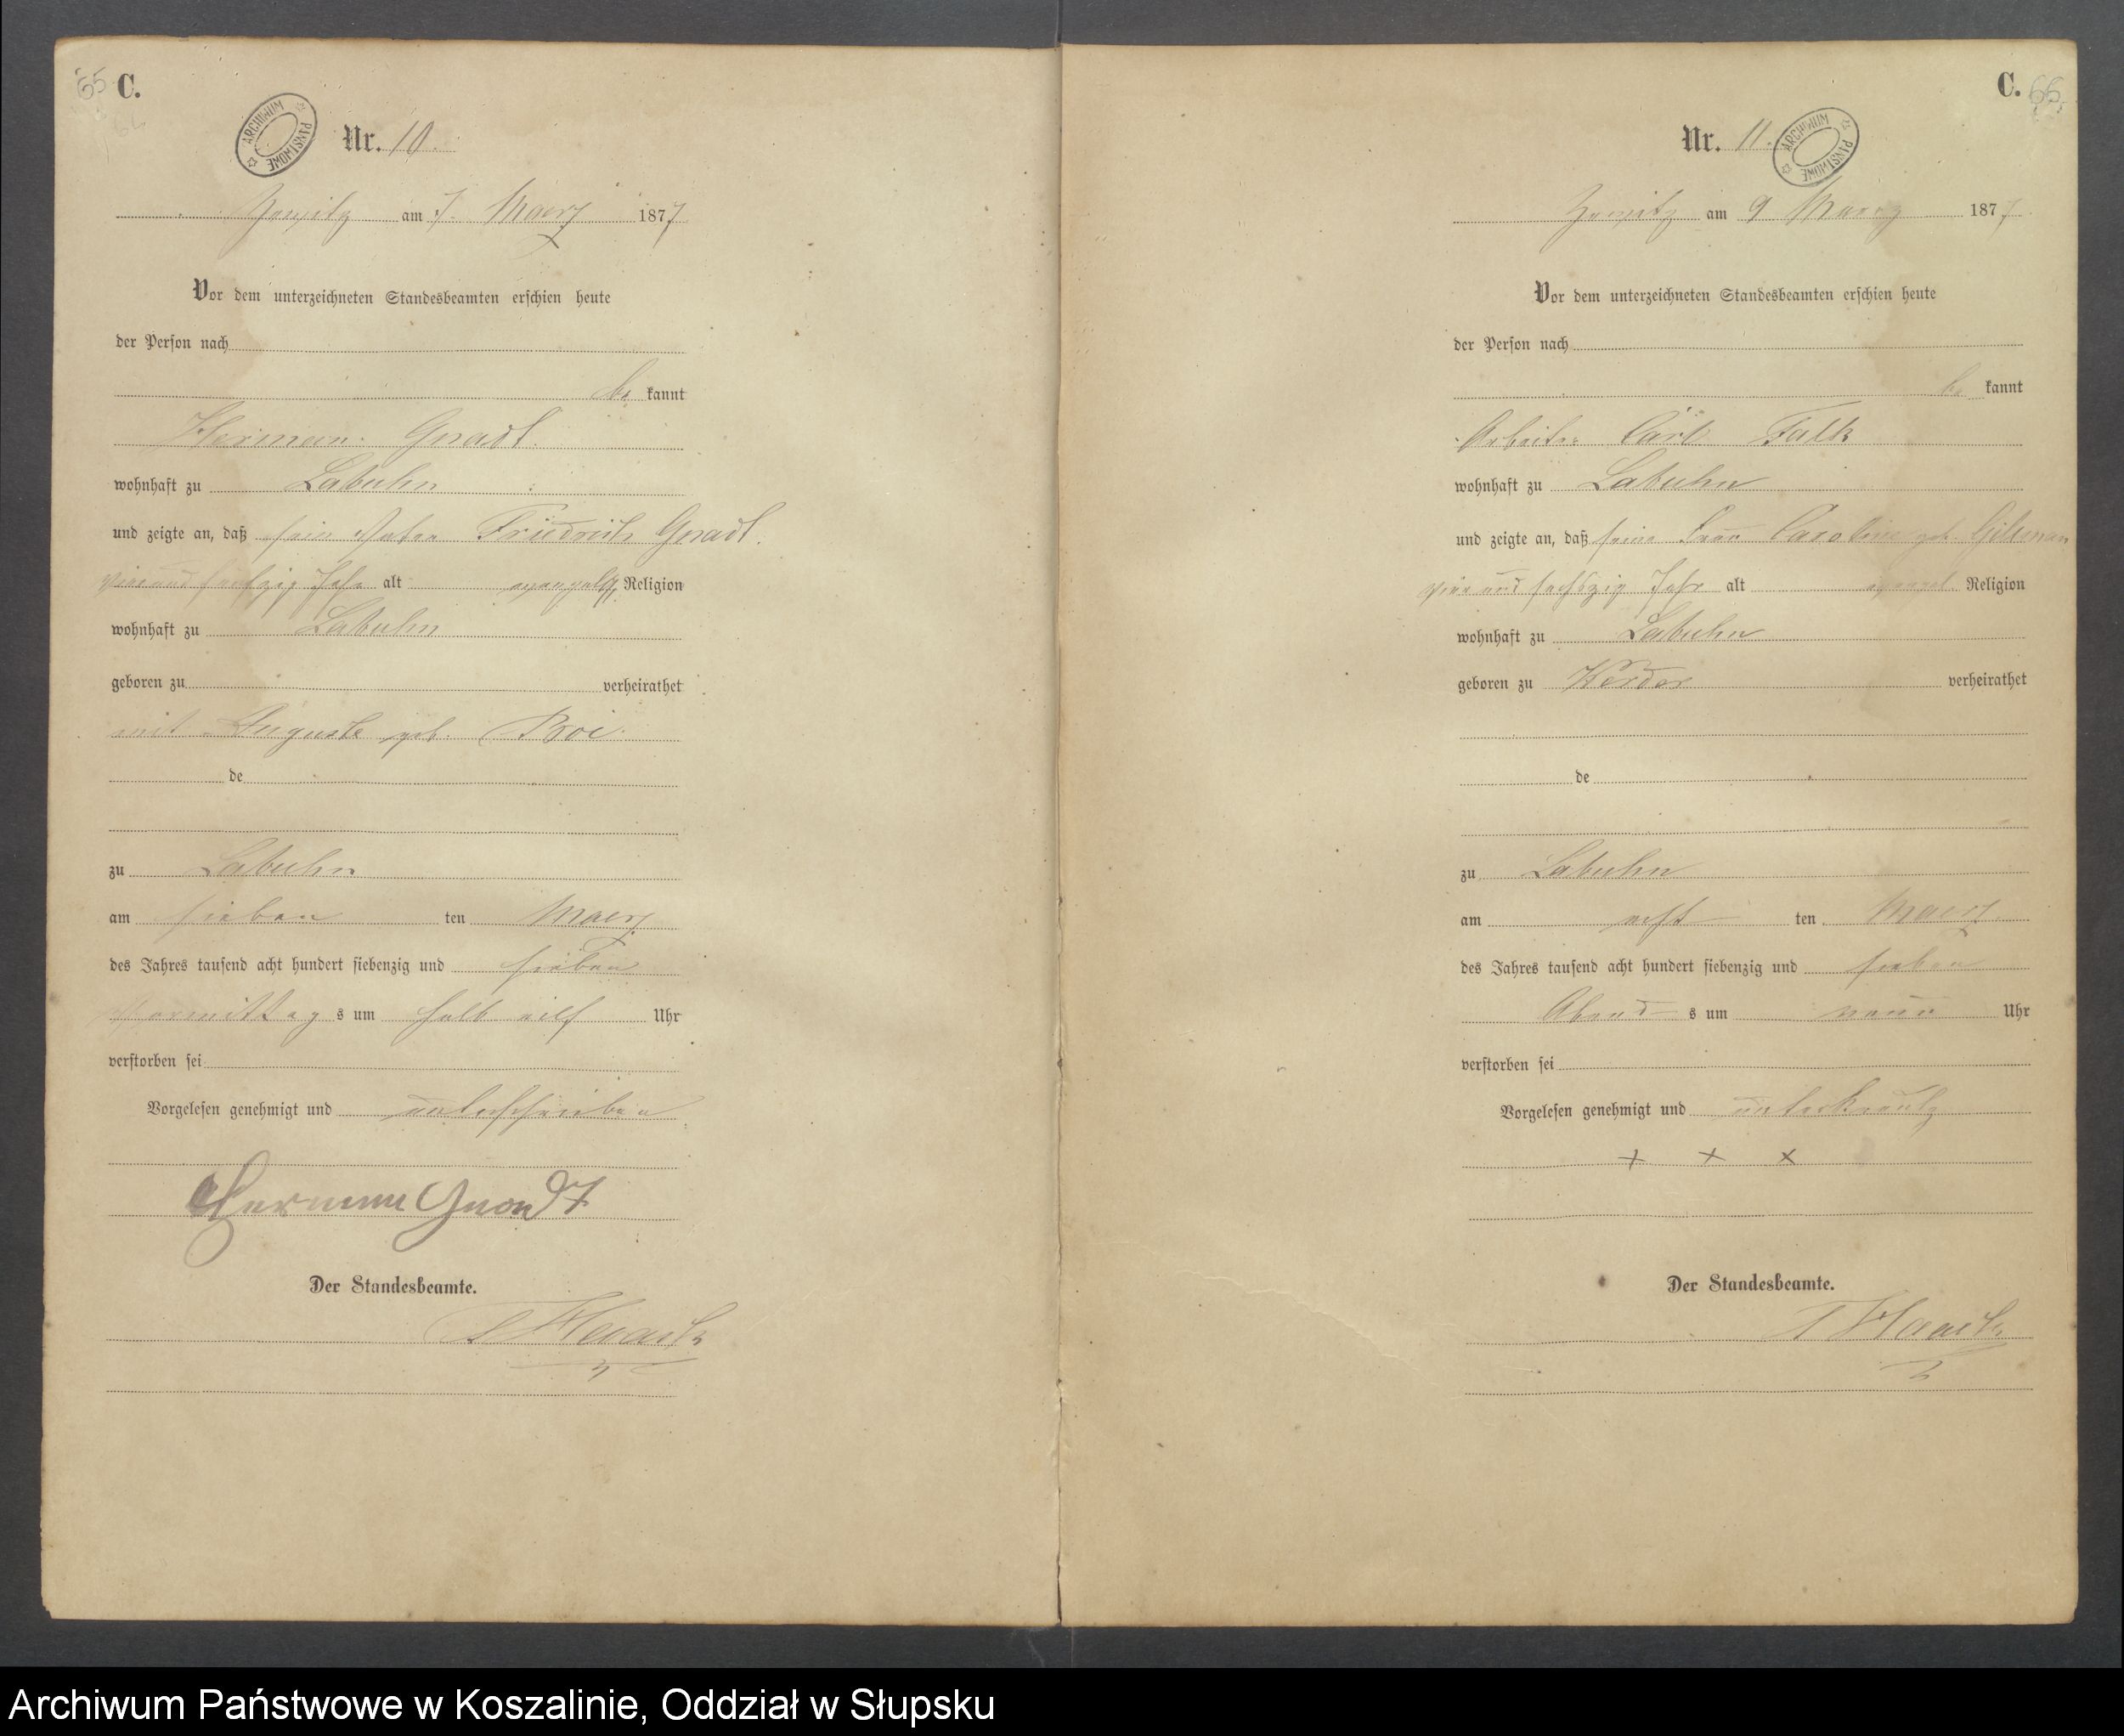 65 C.
ARCHIWUM PAŃSTWOWE
Nr. 10.
am 7. Maerz 1877
Vor dem unterzeichneten Standesbeamten erschien heute
der Person nach
be kannt
Herman Gnadt
wohnhaft zu Labuhn
und zeigte an, daß sein Vater Friedrich Gnadt.
vier und sechzig Jahr alt evangelisch Religion
wohnhaft zu Labuhn
geboren zu verheirathet
mit Auguste geb. Boi
de
zu Labuhn
am sieben ten Maerz
des Jahres tausend acht hundert siebenzig und sieben
Vormittag s um halb eilf Uhr
verstorben sei
Vorgelesen genehmigt und unterschrieben
Hermann Gnadt
Der Standesbeamte.
Haack
C. 66
Nr. 11.
ARCHIWUM PAŃSTWOWE
am 9 Maerz 1877
Vor dem unterzeichneten Standesbeamten erschien heute
der Person nach
be kannt
Arbeiter Carl Falk
wohnhaft zu Labuhn
und zeigte an, daß seine Frau Caroline geb.
vier und sechszig Jahr alt evangel. Religion
wohnhaft zu Labuhn
geboren zu Werder verheirathet
de
zu Labuhn
am acht ten Maerz
des Jahres tausend acht hundert siebenzig und sieben
Abend s um neun Uhr
verstorben sei
Vorgelesen genehmigt und unterkreutz
+ + x
Der Standesbeamte.
Haack
Archiwum Państwowe w Koszalinie, Oddział w Słupsku